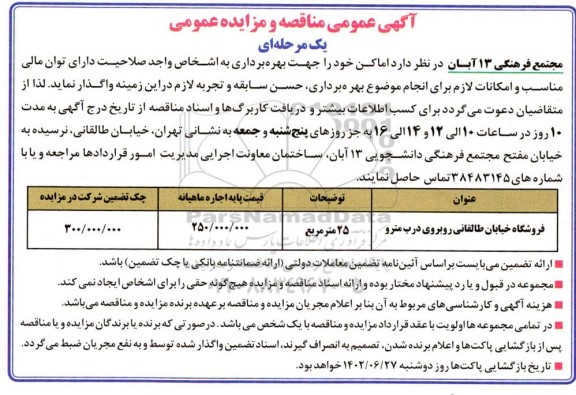 آگهی عمومی مناقصه و مزایده عمومی
یک مرحله‌ای
مجتمع فرهنگی ۱۳ آبان در نظر دارد اماکن خود را جهت بهره‌برداری به اشخاص واجد صلاحیت دارای توان مالی
مناسب و امکانات لازم برای انجام موضوع بهره‌برداری، حسن سابقه و تجربه لازم در این زمینه واگذار نماید. لذا از
متقاضیان دعوت می‌گردد برای کسب اطلاعات بیشتر و دریافت کاربرگ‌ها و اسناد مناقصه از تاریخ درج آگهی به مدت
۱۰ روز در ساعات ۱۰ الی ۱۲ و ۱۴ الی ۱۶ به جز روزهای پنج‌شنبه و جمعه به نشانی تهران، خیابان طالقانی، نرسیده به
خیابان مفتح مجتمع فرهنگی دانشجویی ۱۳ آبان، ساختمان معاونت اجرایی مدیریت امور قراردادها مراجعه و یا با
شماره های ۳۸۴۸۳۱۴۵ تماس حاصل نمایند.
عنوان توضیحات قیمت پایه اجاره ماهیانه چک تضمین شرکت در مزایده
فروشگاه خیابان طالقانی روبروی درب مترو ۲۵ مترمربع ۲۵۰/۰۰۰/۰۰۰ ۳۰۰/۰۰۰/۰۰۰
ParsNamadData
ارائه تضمین می‌بایست براساس آئین‌نامه تضمین معاملات دولتی (ارائه ضمانتنامه بانکی یا چک تضمین) باشد.
مجموعه در قبول و یا رد پیشنهاد مختار بوده و ارائه اسناد مناقصه و مزایده هیچ‌گونه حقی را برای اشخاص ایجاد نمی‌کند.
هزینه آگهی و کارشناسی‌های مربوط به آن بنا بر اعلام مجریان مزایده و مناقصه بر عهده برنده مزایده و مناقصه می‌باشد.
در تمامی مجموعه‌ها اولویت با عقد قرارداد مزایده و مناقصه با یک شخص می‌باشد. درصورتی که برنده یا برندگان مزایده و یا مناقصه
پس از بازگشایی پاکت‌ها و اعلام برنده شدن، تصمیم به انصراف گیرند، اسناد تضمین واگذار شده توسط و به نفع مجریان ضبط می‌گردد.
تاریخ بازگشایی پاکت‌ها روز دوشنبه ۱۴۰۲/۰۶/۲۷ خواهد بود.